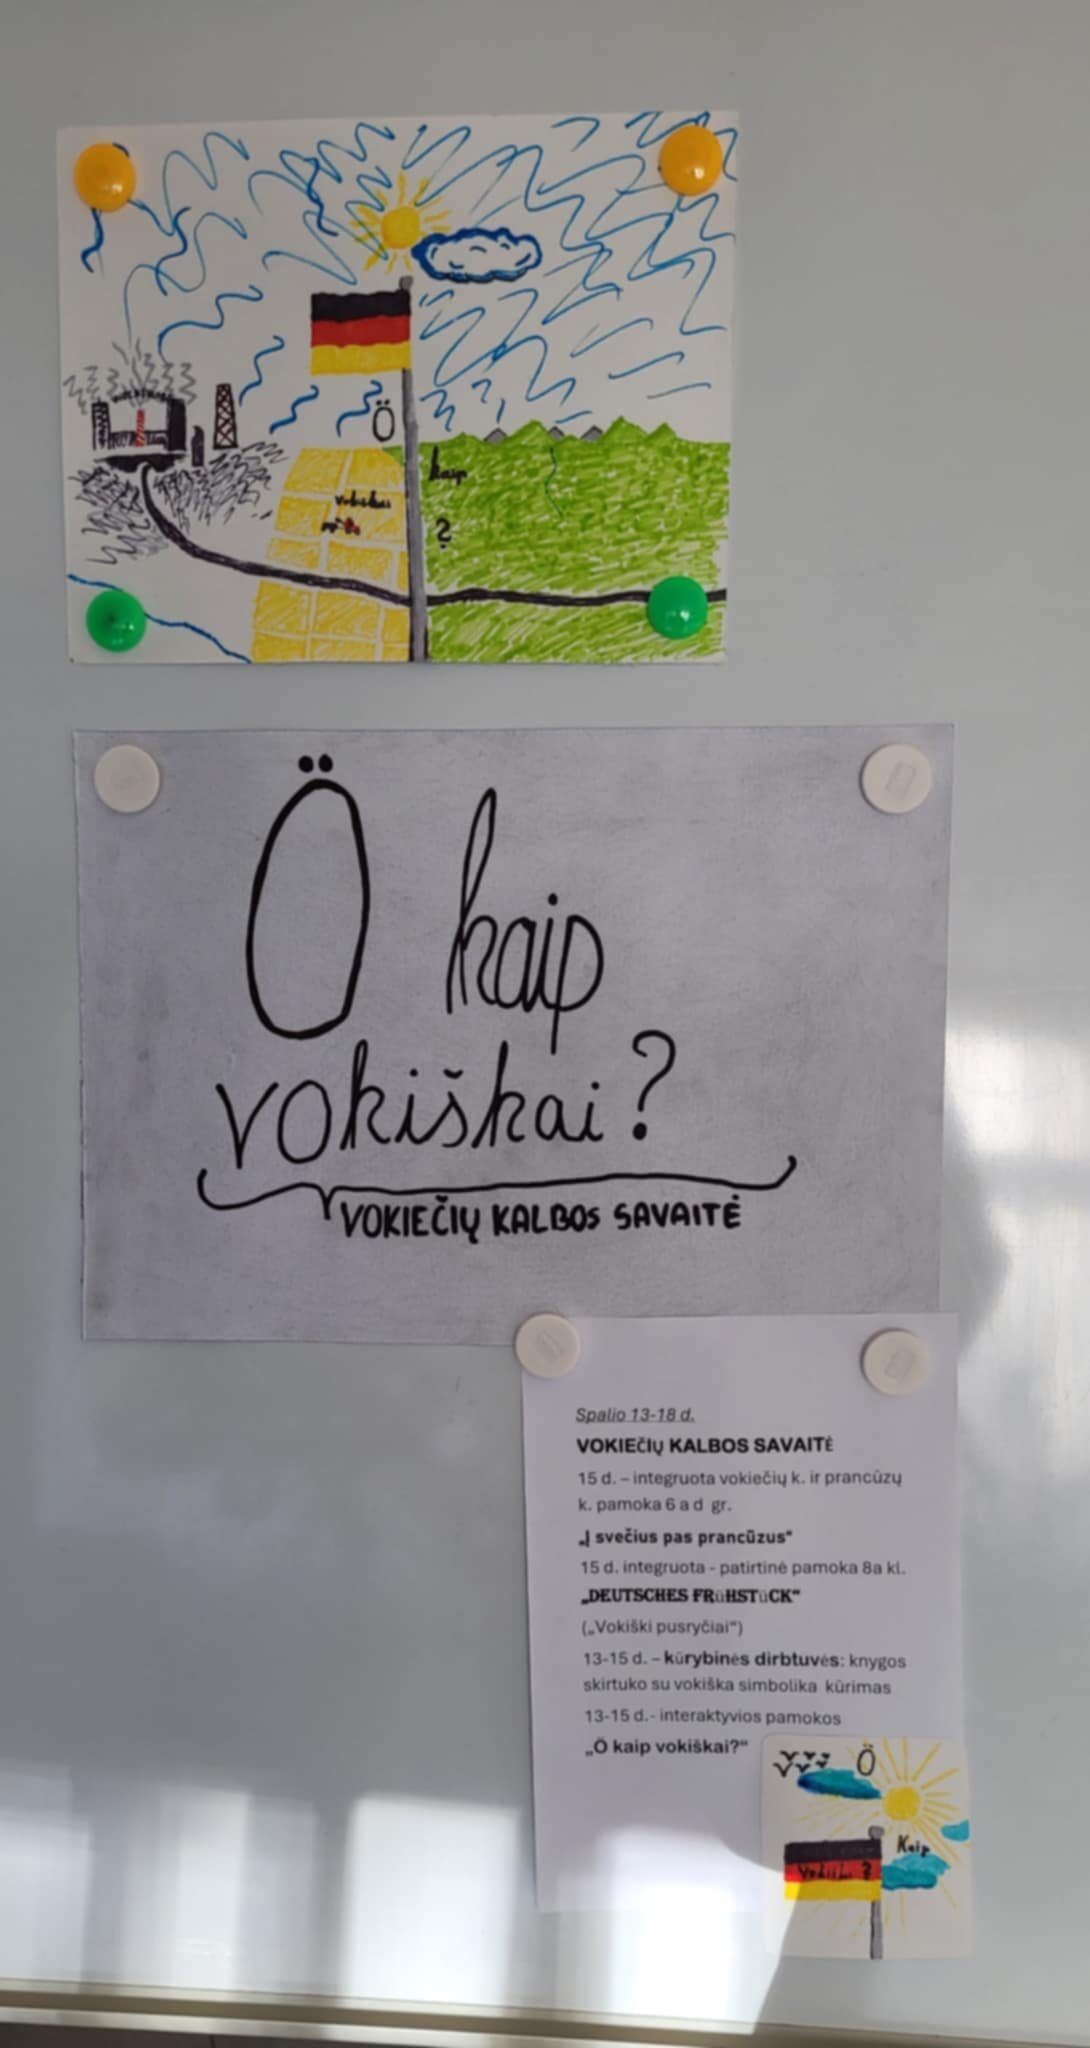 Ö
kaip
?
Ö kaip
vokiškai?
VOKIEČIŲ KALBOS SAVAITĖ
Spalio 13-18 d.
VOKIEČIŲ KALBOS SAVAITĖ
15 d. – integruota vokiečių k. ir prancūzų
k. pamoka 6 a d gr.
„Į svečius pas prancūzus“
15 d. integruota - patirtinė pamoka 8a kl.
„DEUTSCHES FRüHSTüCK“
(„Vokiški pusryčiai“)
13-15 d. – kūrybinės dirbtuvės: knygos
skirtuko su vokiška simbolika kūrimas
13-15 d.- interaktyvios pamokos
„Ö kaip vokiškai?“
Ö
Kaip
?